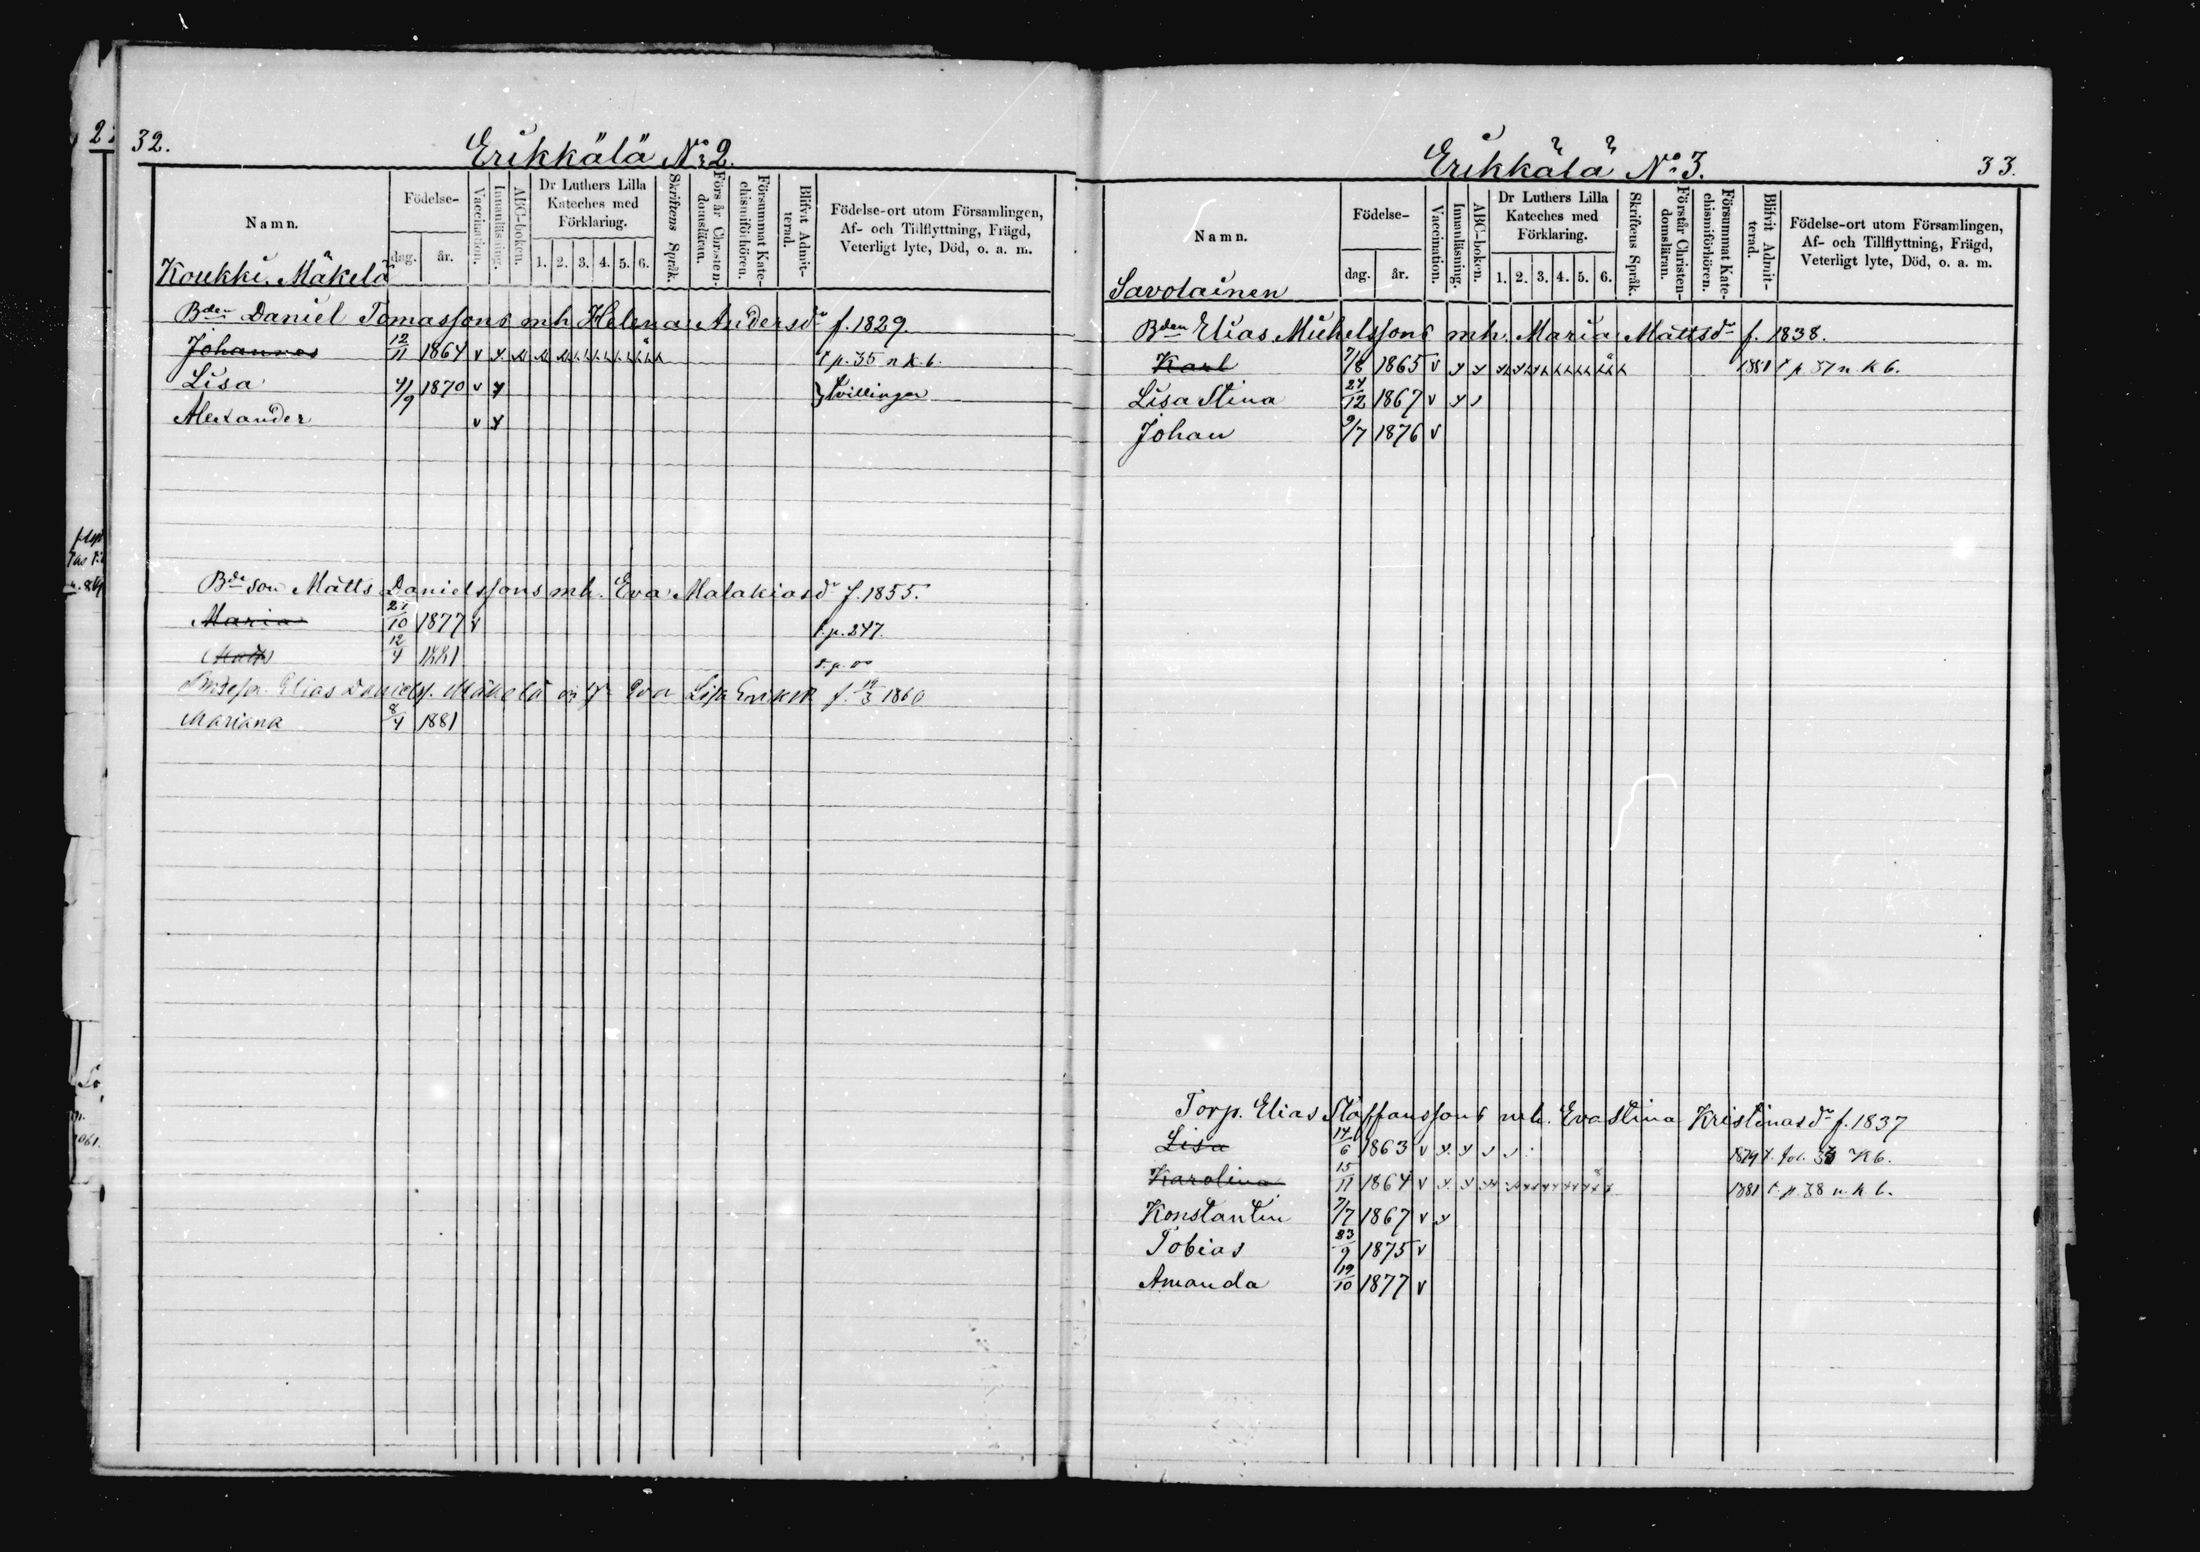 32.
Erikkälä No 2.
Namn.
Födelse-
dag. år.
Vaccination.
Innanläsning.
ABC-boken.
Dr Luthers Lilla Kateches med Förklaring.
1. 2. 3. 4. 5. 6.
Skriftens Språk.
Förs år Christendomsläran.
Försummat Katechismiförhören.
Blifvit Admitterad.
Födelse-ort utom Församlingen, Af- och Tillflyttning, Frägd, Veterligt lyte, Död, o. a. m.
Koukki. Mäkelä
Bden Daniel Tomassons mh Helena Andersdr f. 1829.
Johannes 12/11 1864 v t. p. 35 n k. b.
Lisa 4/9 1870 v } Tvillingar
Alexander v
Bde son Matts Danielssons mh. Eva Malakiasdr f. 1855.
Maria 27/10 1877 v t. p. 247.
Matts 12/4 1881
Elias Daniels. Mäkelä Eva Lisa f. 1860
Mariana 8/4 1881
Erikkälä No 3.
33.
Namn.
Födelse-
dag. år.
Vaccination.
Innanläsning.
ABC-boken.
Dr Luthers Lilla Kateches med Förklaring.
1. 2. 3. 4. 5. 6.
Skriftens Språk.
Förstår Christendomsläran.
Försummat Katechismiförhören.
Blifvit Admitterad.
Födelse-ort utom Församlingen, Af- och Tillflyttning, Frägd, Veterligt lyte, Död, o. a. m.
Savolainen
Bden Elias Michelssons mh. Maria Mattsdr f. 1838.
Karl 7/8 1865 v 1881 t p 37 n. k b.
Lisa Stina 27/12 1867 v
Johan 9/7 1876 v
Torp. Elias Staffanssons mh. Eva Stina Kristinasdr f. 1837
Lisa 14/6 1863 v 1879 t. fol. k b.
Karolina 15/11 1864 v 1881 t. p. 38 n. k b.
Konstantin 7/7 1867 v
Tobias 23/9 1875 v
Amanda 19/10 1877 v